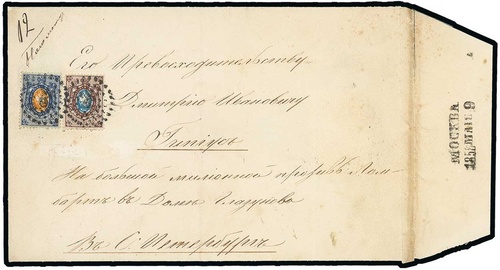 12
Его Превосходительству
Дмитрию Ивановичу
На большой милионной противъ Лом-
бартъ въ Домъ Гладунова
Въ С. Петербургъ
МОСКВА
9